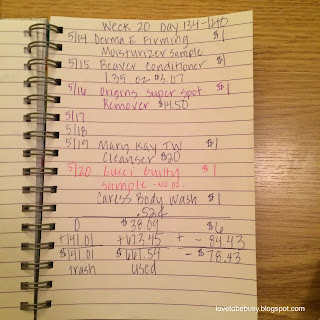 Week 20 Day 134-140
5/14 Derma E Firming $1
Moisturizer Sample
5/15 Beaver Conditioner $1
1.35 oz $3.07
5/16 Origins Super Spot
Remover $14.50
5/17
5/18
5/19 Mary Kay TW $1
Cleanser $20
5/20 Gucci Guilty $1
Sample
Caress Body Wash $1
.52¢
0 $38.09 $6
+141.01 +623.45 + - 84.43
$141.01 $661.54 - $78.43
trash used
lovetobebusy.blogspot.com